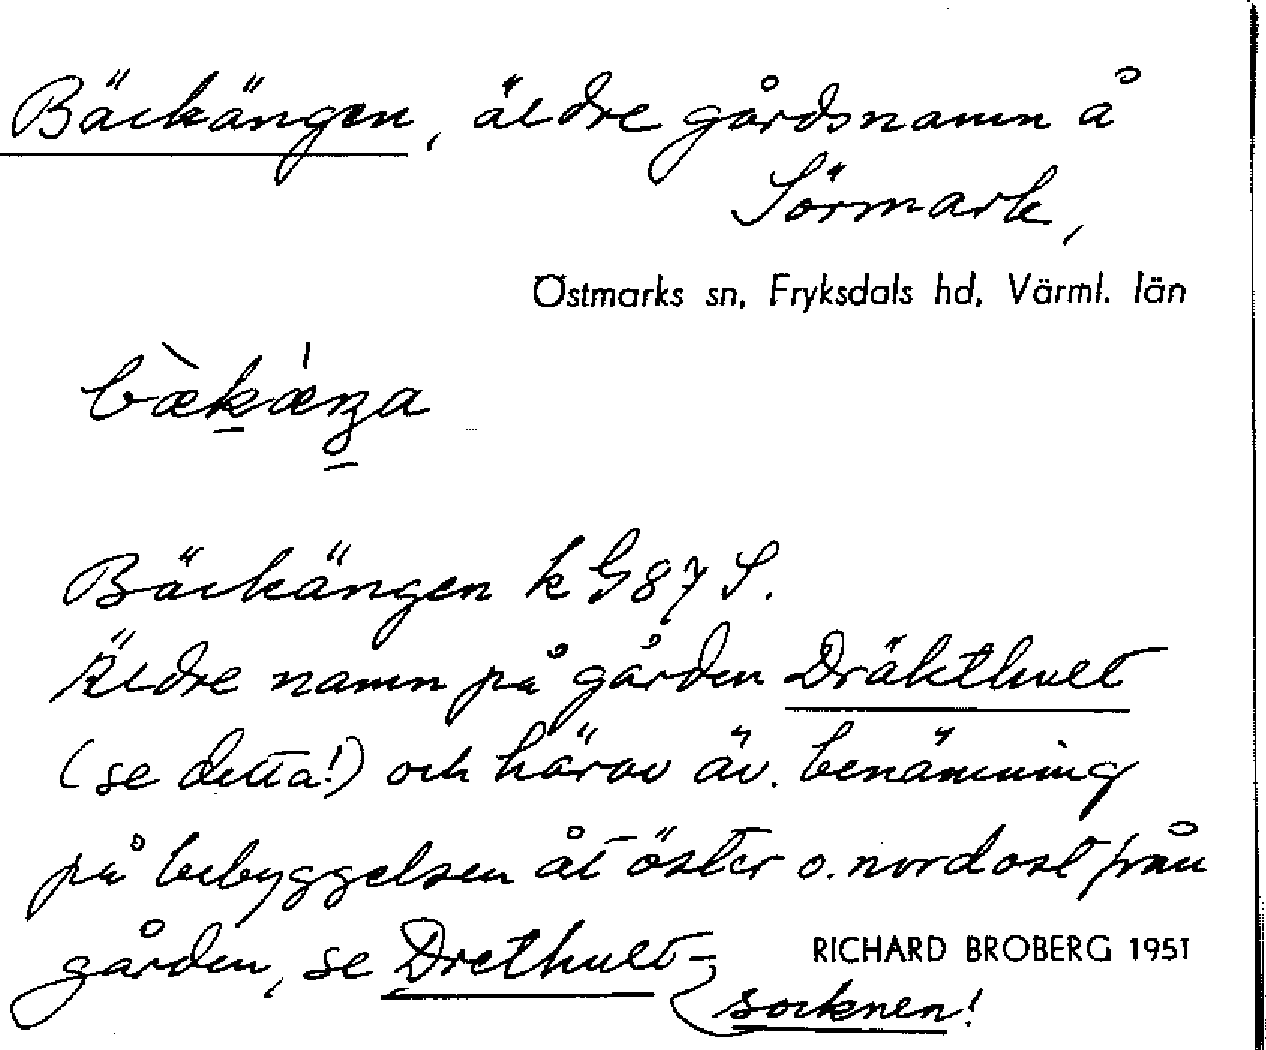 Bäckängen, äldre gårdsnamn å
Sörmark,
Östmarks sn, Fryksdals hd, Värml. län
bæ̀kǽŋa
Bäckängen k G 87 S.
Äldre namn på gården Dräkthult
(se detta!) och härav äv. benämning
på bebyggelsen åt öster o. nordost från
gården, se Drethult-
RICHARD BROBERG 1951
socknen!